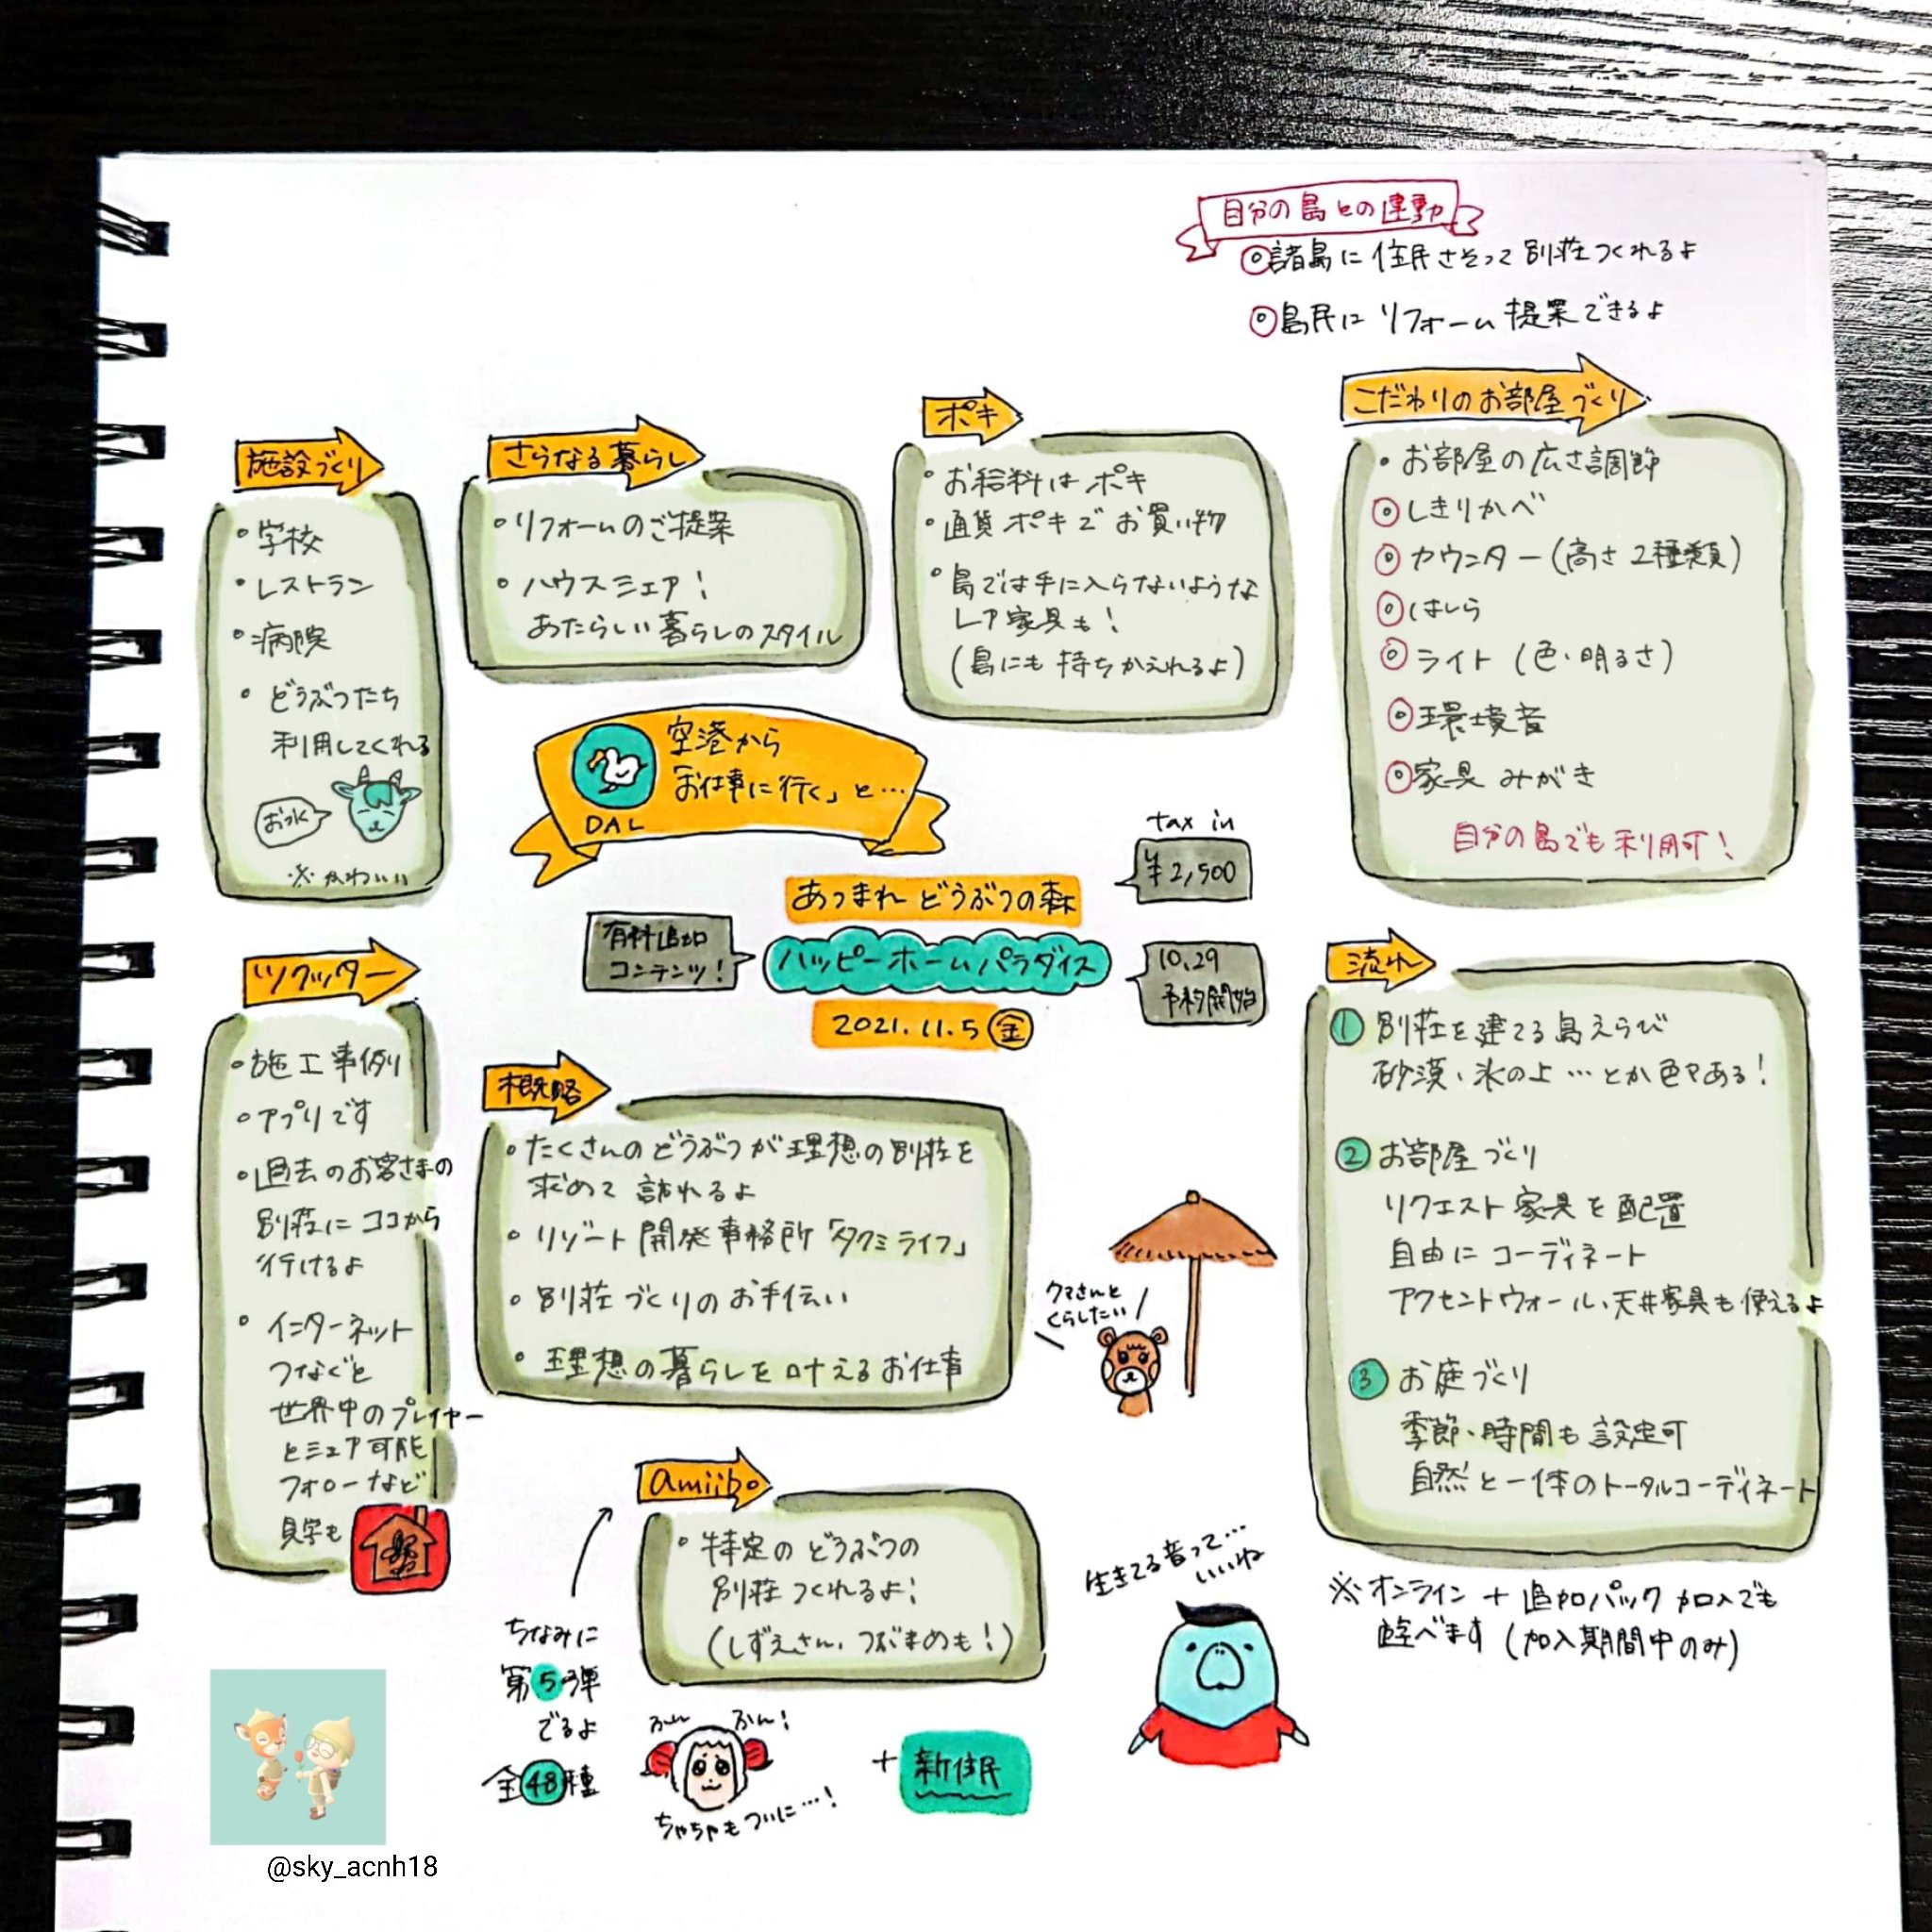 自分の島との連動
◎諸島に住民さそって別荘つくれるよ
◎島民にリフォーム提案できるよ
施設づくり
・学校
・レストラン
・病院
・どうぶつたち
利用してくれる
お水
※かわいい
さらなる暮らし
・リフォームのご提案
・ハウスシェア!
あたらしい暮らしのスタイル
ポキ
・お給料はポキ
・通貨ポキでお買い物
・島では手に入らないような
レア家具も!
(島にも持ちかえれるよ)
こだわりのお部屋づくり
・お部屋の広さ調節
◎しきりかべ
◎カウンター(高さ2種類)
◎はしら
◎ライト(色・明るさ)
◎環境音
◎家具みがき
自分の島でも利用可!
空港から
「お仕事に行く」と…
DAL
tax in
¥2,500
あつまれどうぶつの森
有料追加
コンテンツ!
ハッピーホームパラダイス
10.29
予約開始
2021.11.5(金)
ツクッター
・施工事例
・アプリです
・過去のお客さまの
別荘にココから
行けるよ
・インターネット
つなぐと
世界中のプレイヤー
とシェア可能
フォローなど
見学も
概略
・たくさんのどうぶつが理想の別荘を
求めて訪れるよ
・リゾート開発事務所「タクミライフ」
・別荘づくりのお手伝い
・理想の暮らしを叶えるお仕事
クマさんと
くらしたい
流れ
①別荘を建てる島えらび
砂漠、氷の上…とか色々ある!
②お部屋づくり
リクエスト家具を配置
自由にコーディネート
アクセントウォール、天井家具も使えるよ
③お庭づくり
季節、時間も設定可
自然と一体のトータルコーディネート
※オンライン+追加パック加入でも
遊べます(加入期間中のみ)
amiibo
・特定のどうぶつの
別荘つくれるよ!
(しずえさん、つぶまめも!)
ちなみに
第5弾
でるよ
全48種
ぷん ぷん!
ちゃちゃもついに…!
+新住民
生きてる音って…
いいね
@sky_acnh18